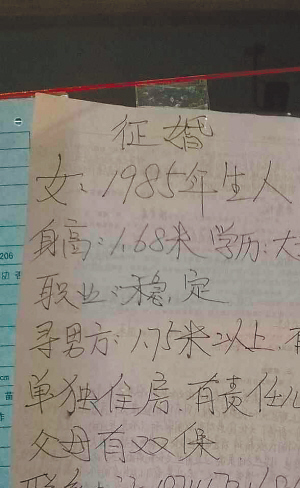 征婚
女:1985年生人
身高:1.68米 学历:大
职业:稳定
寻男方:1.75米以上.有
单独住房.有责任心
父母有双保
206
cm